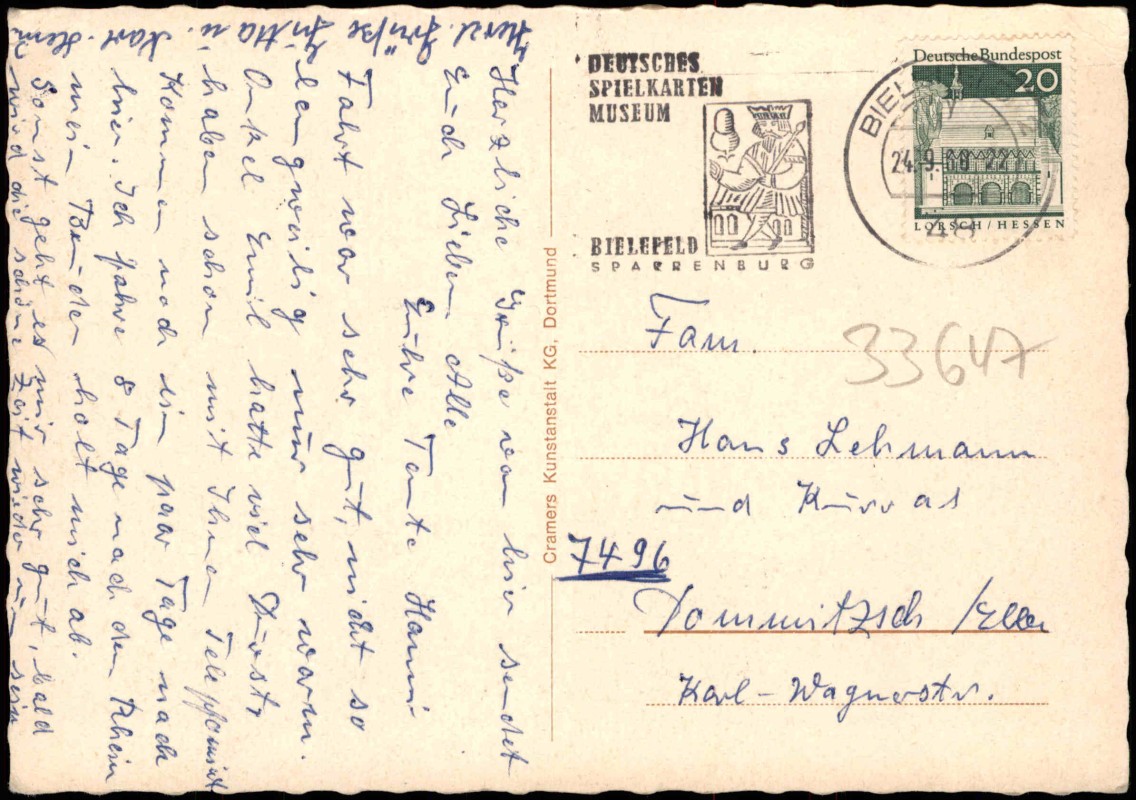 Herzliche Grüße von hier sendet
Euch Lieben Alle
Euhre Tante Hanni
Fahrt war sehr gut, nicht so
langweilig nur sehr warm.
Onkel Emil hatte viel Durst,
haben schon mit Ihnen
Kommen noch ein paar Tage nach
hier. Ich fahre 8 Tage nach dem Rhein
mein Bruder holt mich ab.
Sonst geht es mir sehr gut, bald
wird die schöne Zeit wieder um sein
Herzl. Grüße
DEUTSCHES
SPIELKARTEN
MUSEUM
BIELEFELD
SPARRENBURG
BIEL
24.9.68
48
Deutsche Bundespost
20
LORSCH/HESSEN
Cramers Kunstanstalt KG, Dortmund
33647
Fam.
Hans Lehmann
und Kurras
7496
Dommitzsch /Elbe
Karl-Wagnerstr.